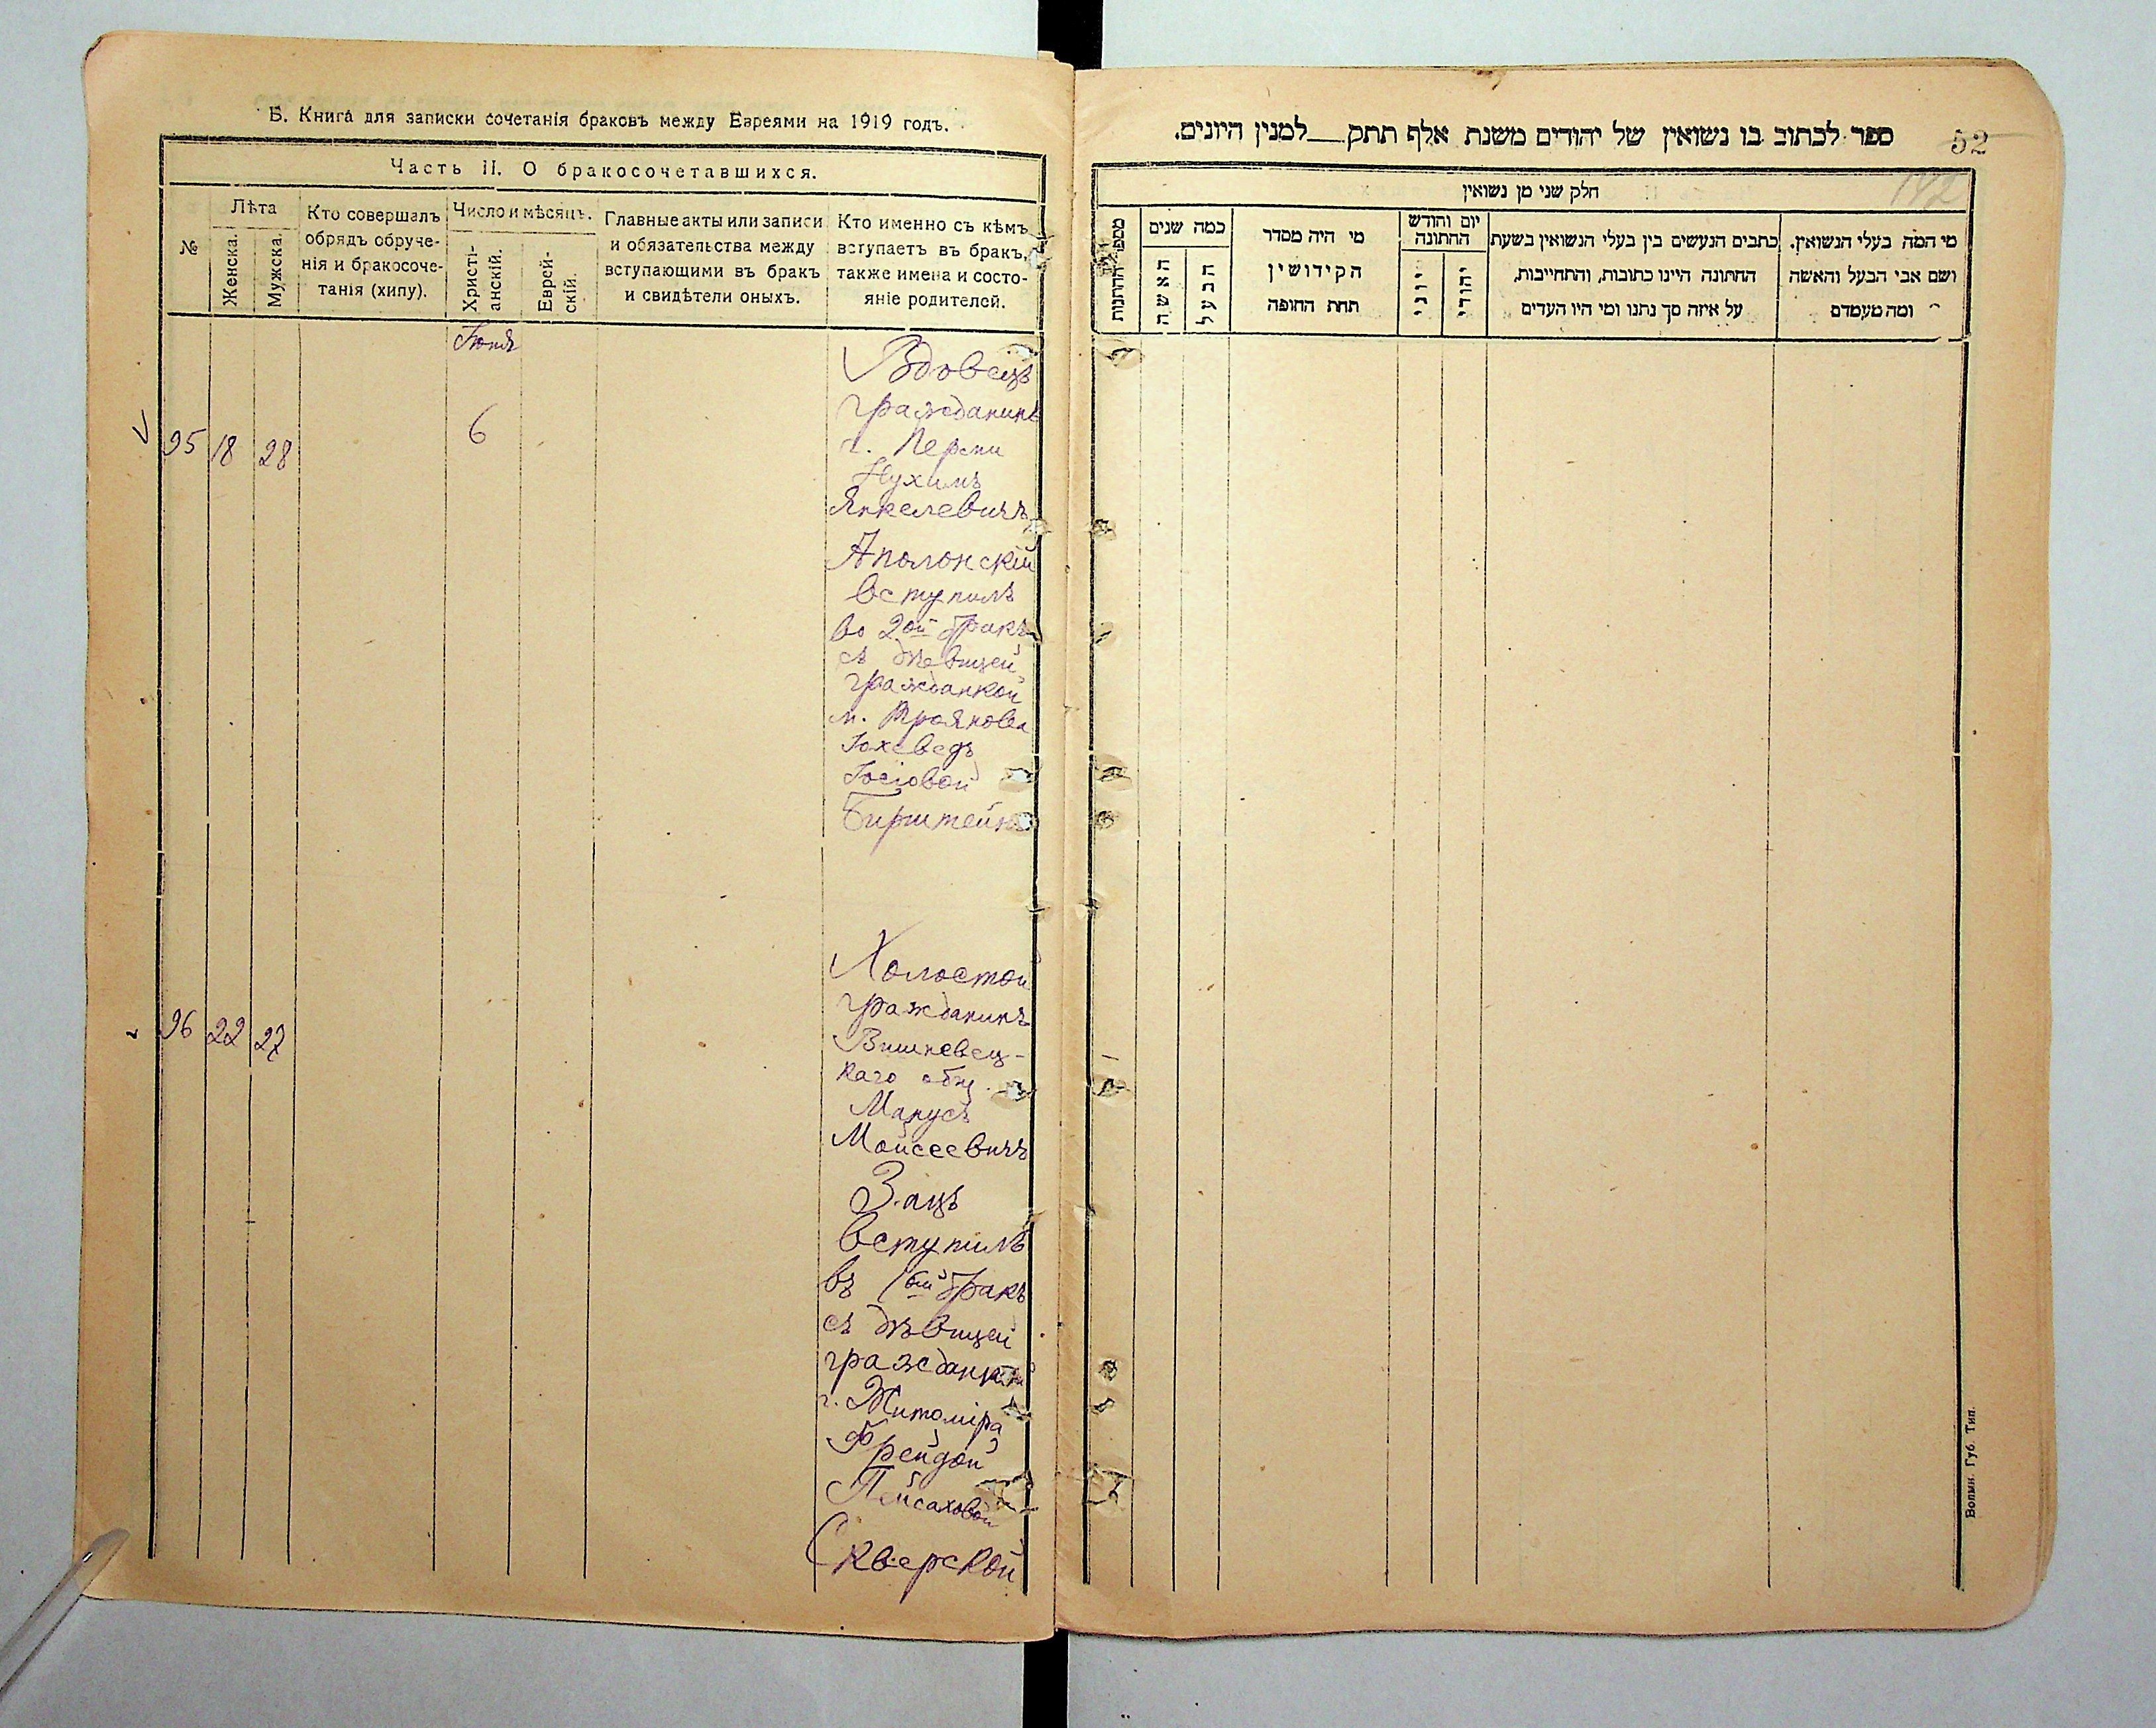 Б. Книга для записки сочетанія браковъ между Евреями на 1919 годъ.
Часть II. О бракосочетавшихся.
№
Лѣта
Женска.
Мужска.
Кто совершалъ
обрядъ обруче-
нія и бракосоче-
танія (хипу).
Число и мѣсяцъ.
Христі-
анскій.
Еврей-
скій.
Главные акты или записи
и обязательства между
вступающими въ бракъ
и свидѣтели оныхъ.
Кто именно съ кѣмъ
вступаетъ въ бракъ,
также имена и состо-
яніе родителей.
95 18 28
6
Вдовецъ
гражданинъ
Нухимъ
Янкелевичъ
Аполонскій
вступилъ
во 2ой бракъ
съ дѣвицей
гражданкой
м. Троянова
Іохеведъ
Іосіовой
Бирштейнъ
96 22 27
Холостой
гражданинъ
Вишневец-
каго общ.
Манусъ
Мойсеевичъ
Зацъ
вступилъ
въ 1ый бракъ
съ дѣвицей
гражданкой
г. Житоміра
Фрейдой
Пейсаховой
Скверской
52
ספר לכתוב בו נשואין של יהודים משנת אלף תתק__למנין היונים.
חלק שני מן נשואין
מספר החתנות
כמה שנים
האשה
הבעל
מי היה מסדר
הקידושין
תחת החופה
יום וחודש
החתונה
יוני
יהודי
כתבים הנעשים בין בעלי הנשואין בשעת
החתונה היינו כתובות, והתחייבות,
על איזה סך נתנו ומי היו העדים
מי המה בעלי הנשואין.
ושם אבי הבעל והאשה
ומה מעמדם
Волын. Губ. Тип.